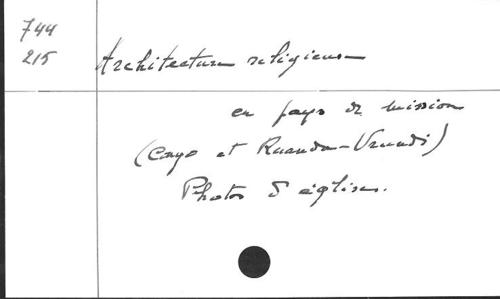 744
215
Architecture religieuse
en pays de mission
(Congo et Ruanda-Urundi)
Photos d'églises.